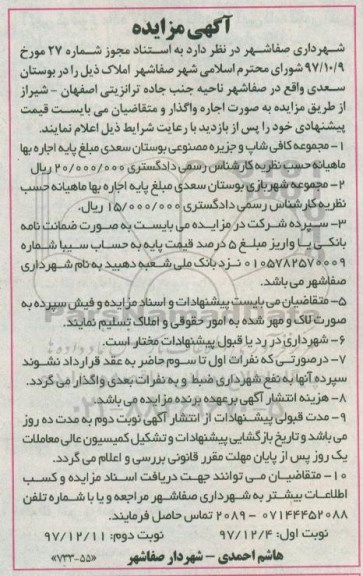 آگهی مزایده
شهرداری صفاشهر در نظر دارد به استناد مجوز شماره ۲۷ مورخ
۹۷/۱۰/۹ شورای محترم اسلامی شهر صفاشهر املاک ذیل را در بوستان
سعدی واقع در صفاشهر ناحیه جنب جاده ترانزیتی اصفهان – شیراز
از طریق مزایده به صورت اجاره واگذار و متقاضیان می بایست قیمت
پیشنهادی خود را پس از بازدید با رعایت شرایط ذیل اعلام نمایند.
۱- مجموعه کافی شاپ و جزیره مصنوعی بوستان سعدی مبلغ پایه اجاره بها
ماهیانه حسب نظریه کارشناس رسمی دادگستری ۲۰/۰۰۰/۰۰۰ ریال
۲- مجموعه شهربازی بوستان سعدی مبلغ پایه اجاره بها ماهیانه حسب
نظریه کارشناس رسمی دادگستری ۱۵/۰۰۰/۰۰۰ ریال.
۳- سپرده شرکت در مزایده می بایست به صورت ضمانت نامه
بانکی یا واریز مبلغ ۵ درصد قیمت پایه به حساب سیبا شماره
۰۱۰۵۷۸۲۵۷۰۰۰۹ نزد بانک ملی شعبه دهبید به نام شهرداری
صفاشهر می باشد.
۵- متقاضیان می بایست پیشنهادات و اسناد مزایده و فیش سپرده به
صورت لاک و مهر شده به امور حقوقی و املاک تسلیم نمایند.
۶- شهرداری در رد یا قبول پیشنهادات مختار است.
۷- درصورتی که نفرات اول تا سوم حاضر به عقد قرارداد نشوند
سپرده آنها به نفع شهرداری ضبط و به نفرات بعدی واگذار می گردد.
۸- هزینه انتشار آگهی برعهده برنده مزایده می باشد.
۹- مدت قبولی پیشنهادات از انتشار آگهی نوبت دوم به مدت ده روز
می باشد و تاریخ بازگشایی پیشنهادات و تشکیل کمیسیون عالی معاملات
یک روز پس از پایان مهلت مقرر قانونی بررسی و اعلام می گردد.
۱۰- متقاضیان می توانند جهت دریافت اسناد مزایده و کسب
اطلاعات بیشتر به شهرداری صفاشهر مراجعه و یا با شماره تلفن
۰۷۱۴۴۴۵۲۰۸۸ - ۲۰۸۹ تماس حاصل فرمایند.
نوبت اول: ۹۷/۱۲/۴ نوبت دوم: ۹۷/۱۲/۱۱
هاشم احمدی – شهردار صفاشهر «۷۳۳-۵۵»